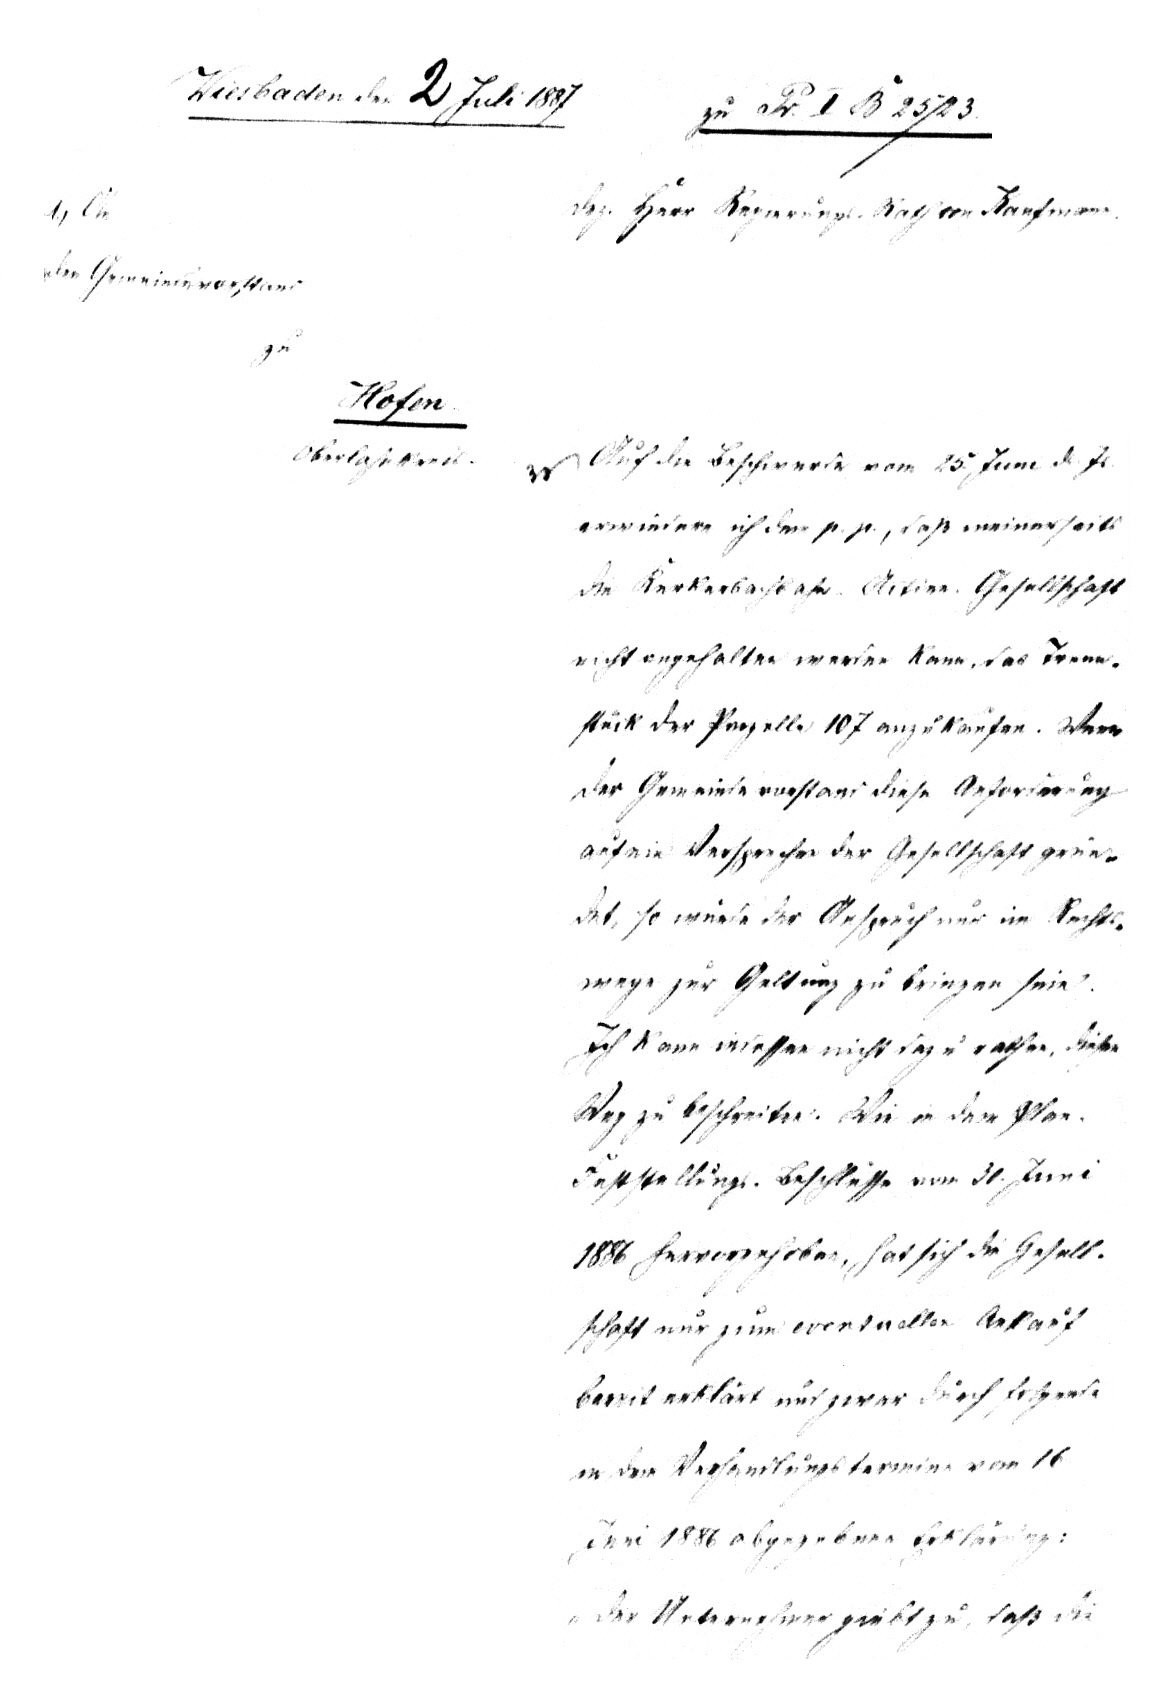 Wiesbaden den 2 Juli 1887
zu Pr. I B 2523.
Dez. Herr Regierungs-Rath von Kaufmann.
1, An
den Gemeindevorstand
zu
Hofen.
Oberlahnkreis.
Auf die Beschwerde vom 25. Juni d. Js.
erwiedere ich dem p. p., daß meinerseits
die Kerkerbachbahn-Actien-Gesellschaft
nicht angehalten werden kann, das Trenn-
stück der Parzelle 107 anzukaufen. Wenn
der Gemeindevorstand diese Anforderung
auf ein Versprechen der Gesellschaft grün-
det, so würde der Anspruch nur im Rechts-
wege zur Geltung zu bringen sein.
Ich kann indessen nicht dazu rathen, diesen
Weg zu beschreiten. Wie in dem Plan-
Feststellungs-Beschlusse vom 30. Juni
1886 hervorgehoben, hat sich die Gesell-
schaft nur zum eventuellen Ankauf
bereit erklärt und zwar durch folgende
in dem Verhandlungstermine vom 16
Juni 1886 abgegebene Erklärung:
"der Unternehmer giebt zu, daß die